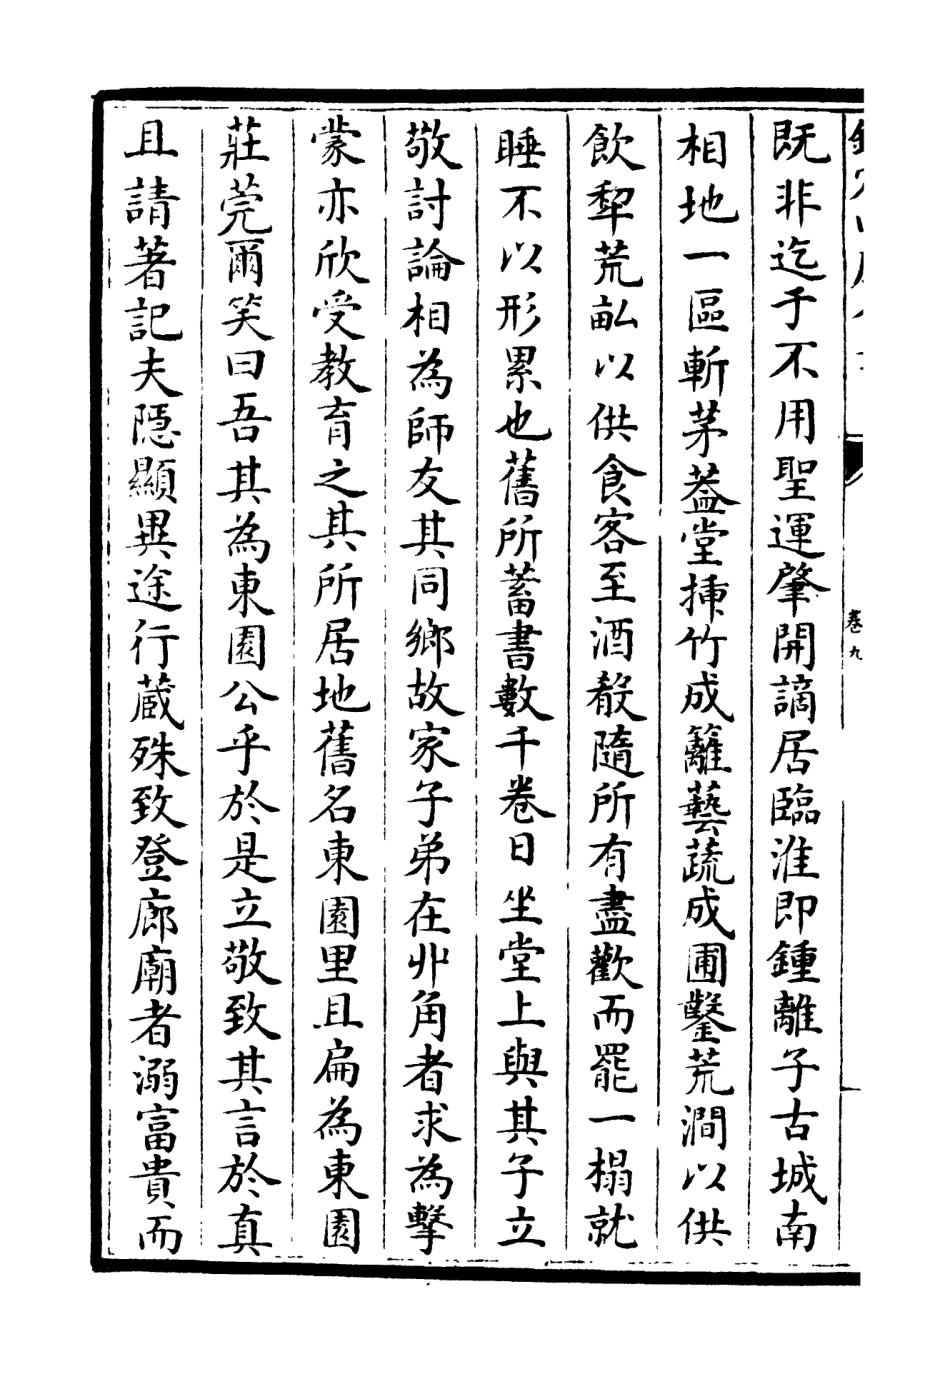 既非迄于不用聖運肇開謫居臨淮即鍾離子古城南
相地一區斬茅葢堂揷竹成籬藝蔬成圃鑿荒澗以供
飲犂荒畆以供食客至酒殽隨所有盡歡而罷一榻就
睡不以形累也舊所蓄書數千卷日坐堂上與其子立
敬討論相為師友其同鄉故家子弟在丱角者求為擊
蒙亦欣受教育之其所居地舊名東園里且扁為東園
莊莞爾笑曰吾其為東園公乎於是立敬致其言於真
且請著記夫隱顯異途行蔵殊致登廊廟者溺富貴而
卷九